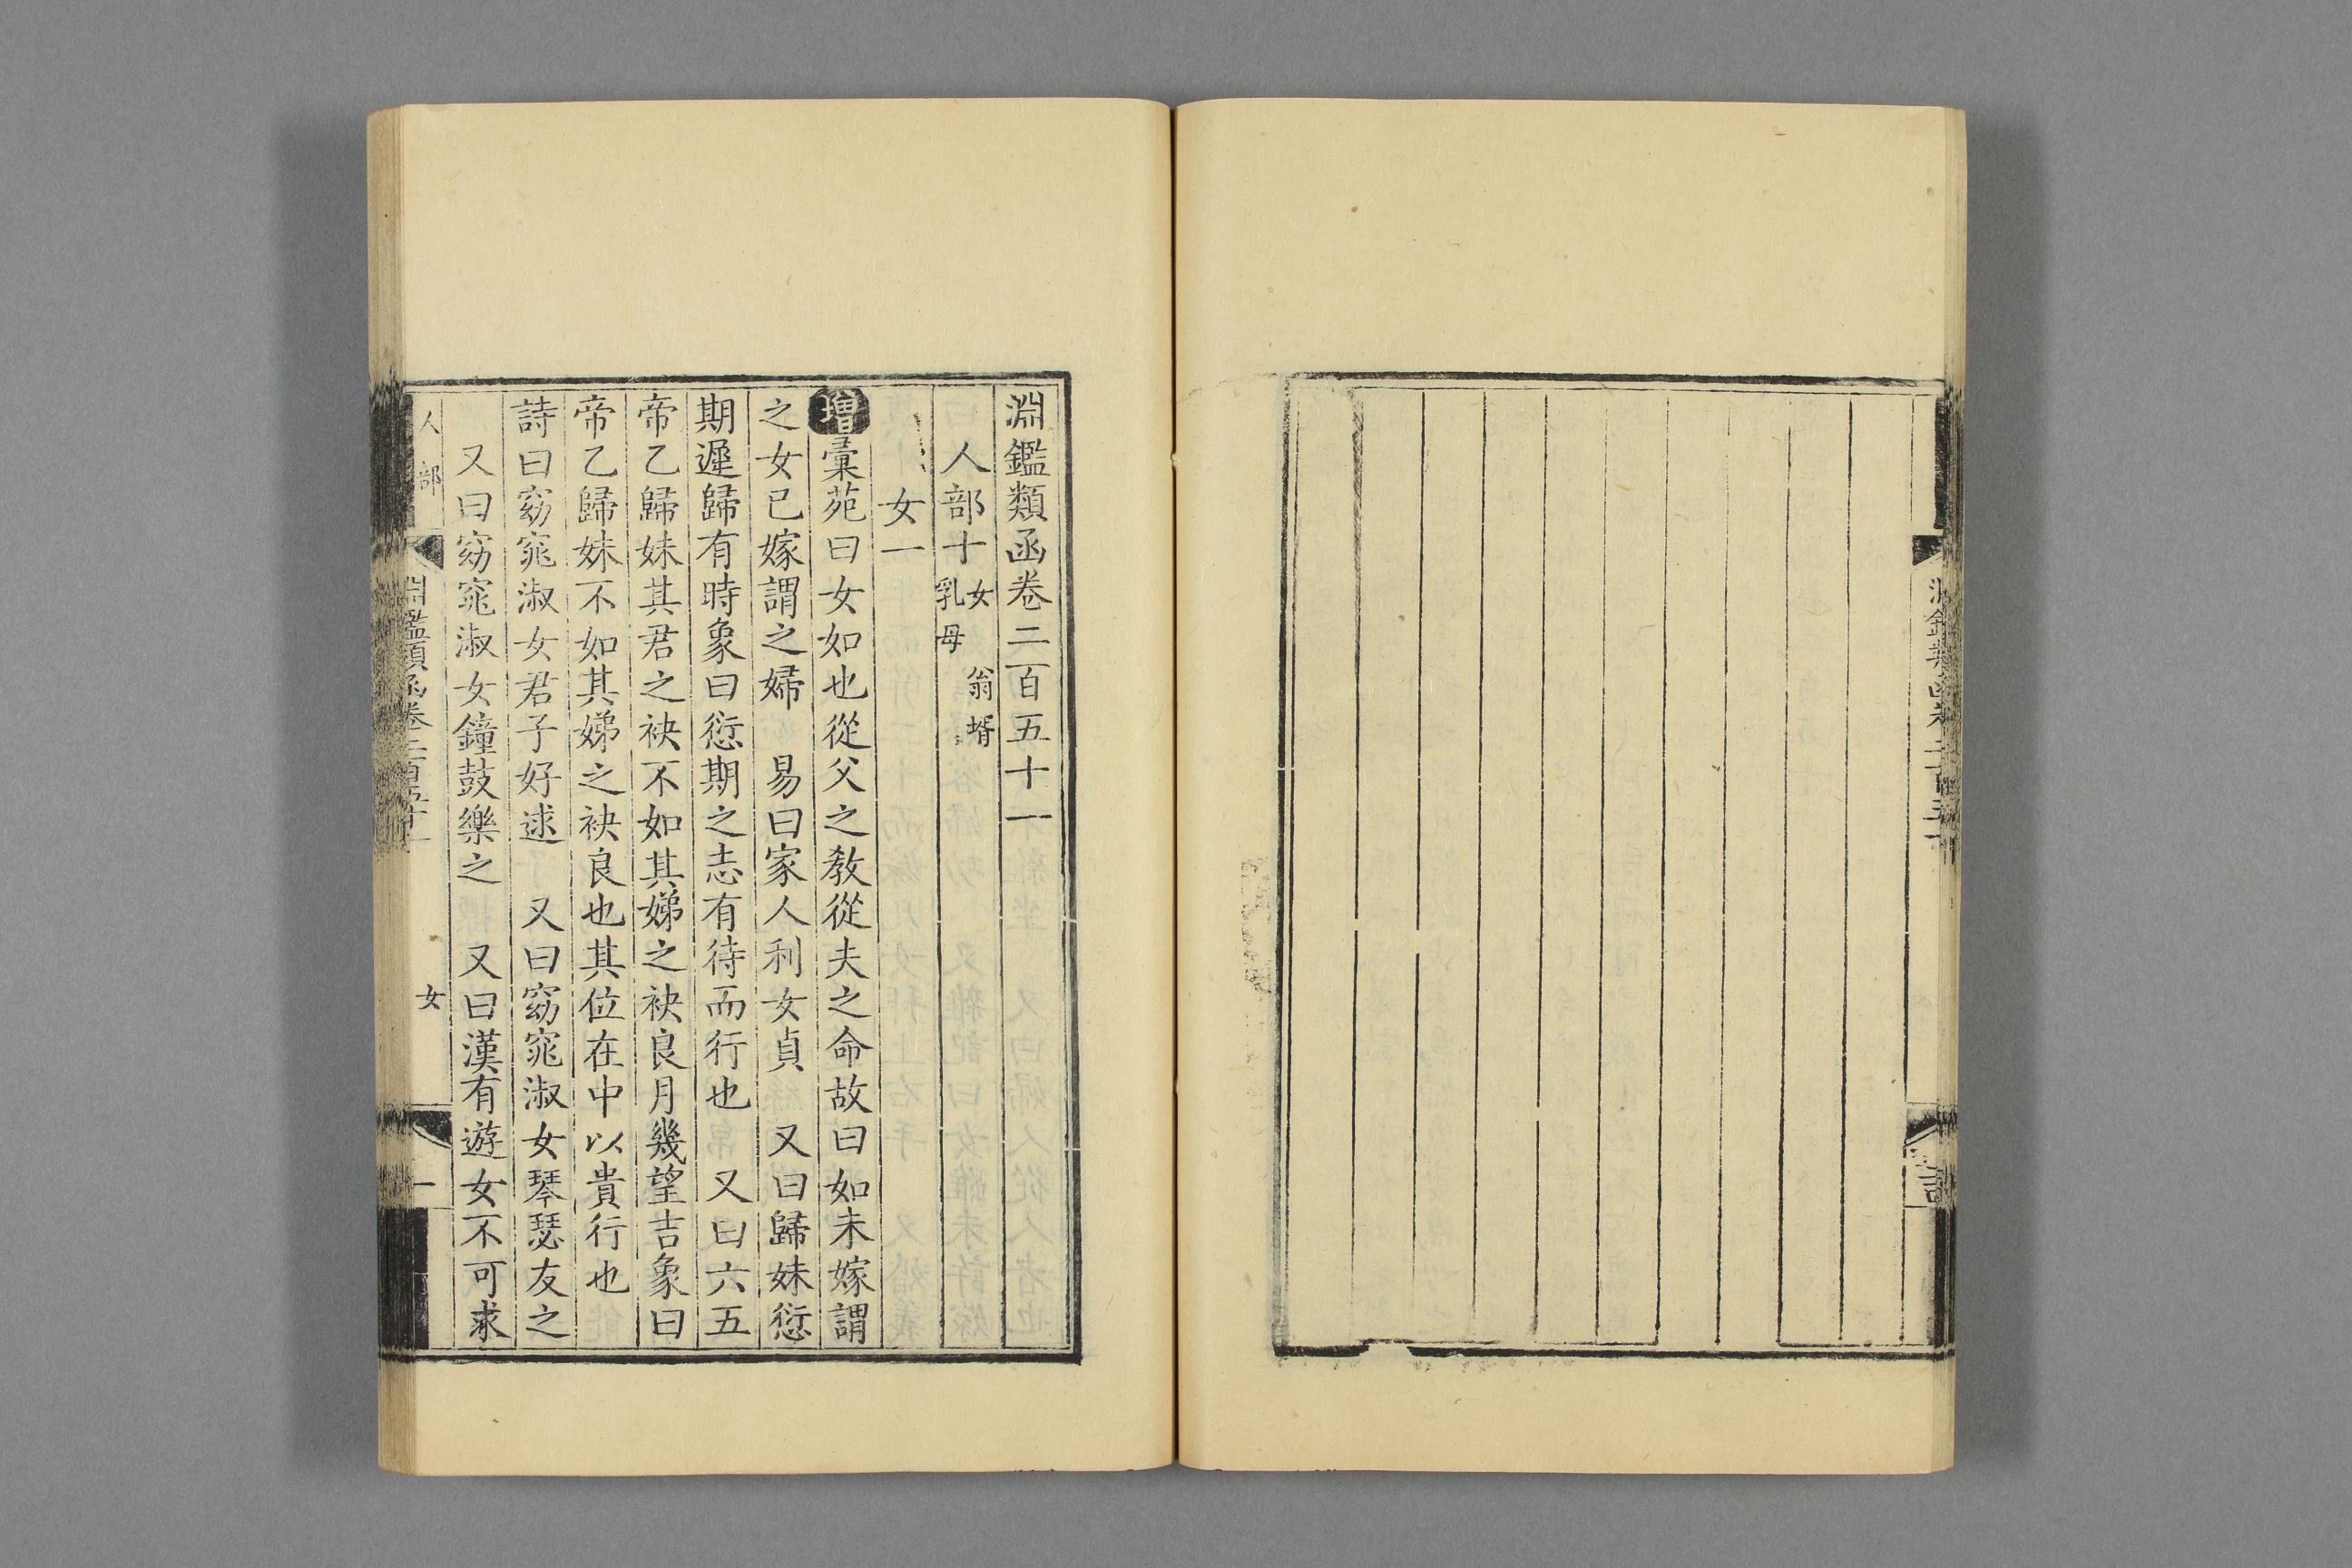 淵鑑類函卷二百五十一
人部十 女 翁壻 乳母
女一
增彙苑曰女如也從父之教從夫之命故曰如未嫁謂
之女已嫁謂之婦 易曰家人利女貞 又曰歸妹愆
期遲歸有時象曰愆期之志有待而行也 又曰六五
帝乙歸妹其君之袂不如其娣之袂良月幾望吉象曰
帝乙歸妹不如其娣之袂良也其位在中以貴行也
詩曰窈窕淑女君子好逑 又曰窈窕淑女琴瑟友之
又曰窈窕淑女鐘鼓樂之 又曰漢有遊女不可求
人部 淵鑑類函卷二百五十一 女 一